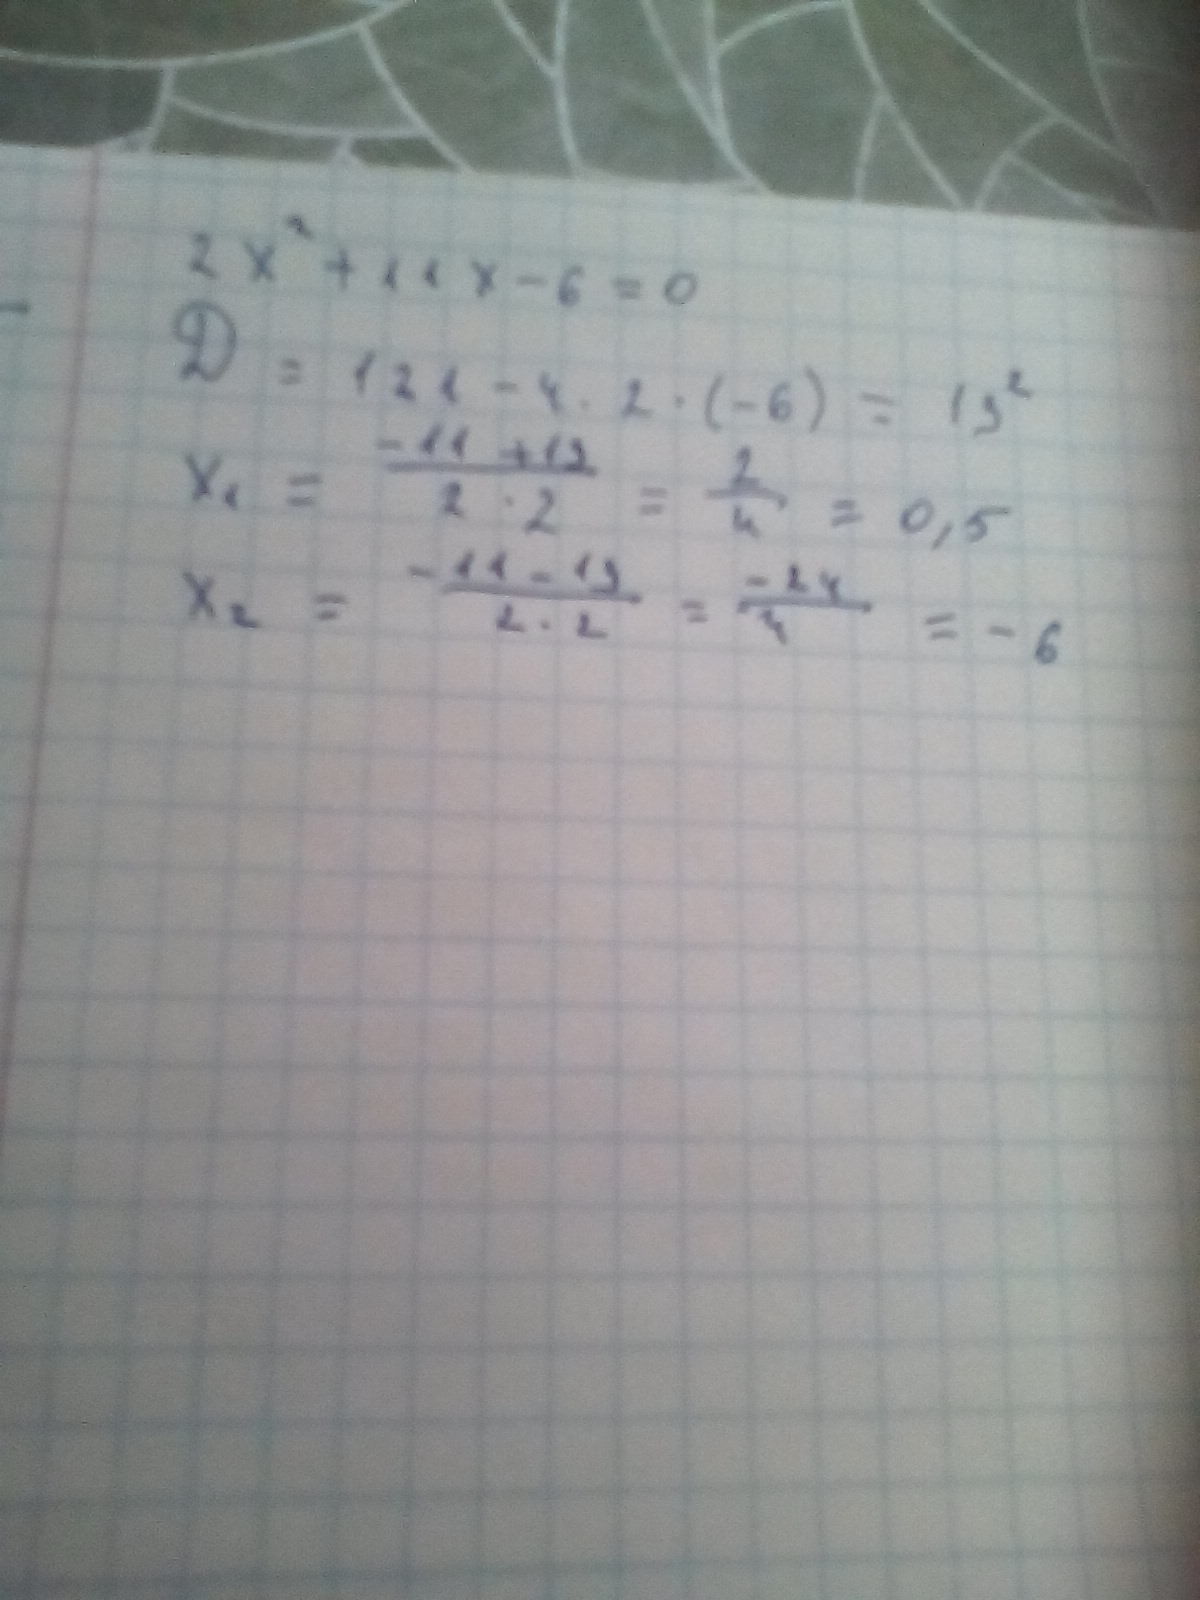 2x² + 11x - 6 = 0
D = 121 - 4 · 2 · (-6) = 13²
x₁ = (-11 + 13)/(2 · 2) = 2/4 = 0,5
x₂ = (-11 - 13)/(2 · 2) = -24/4 = -6